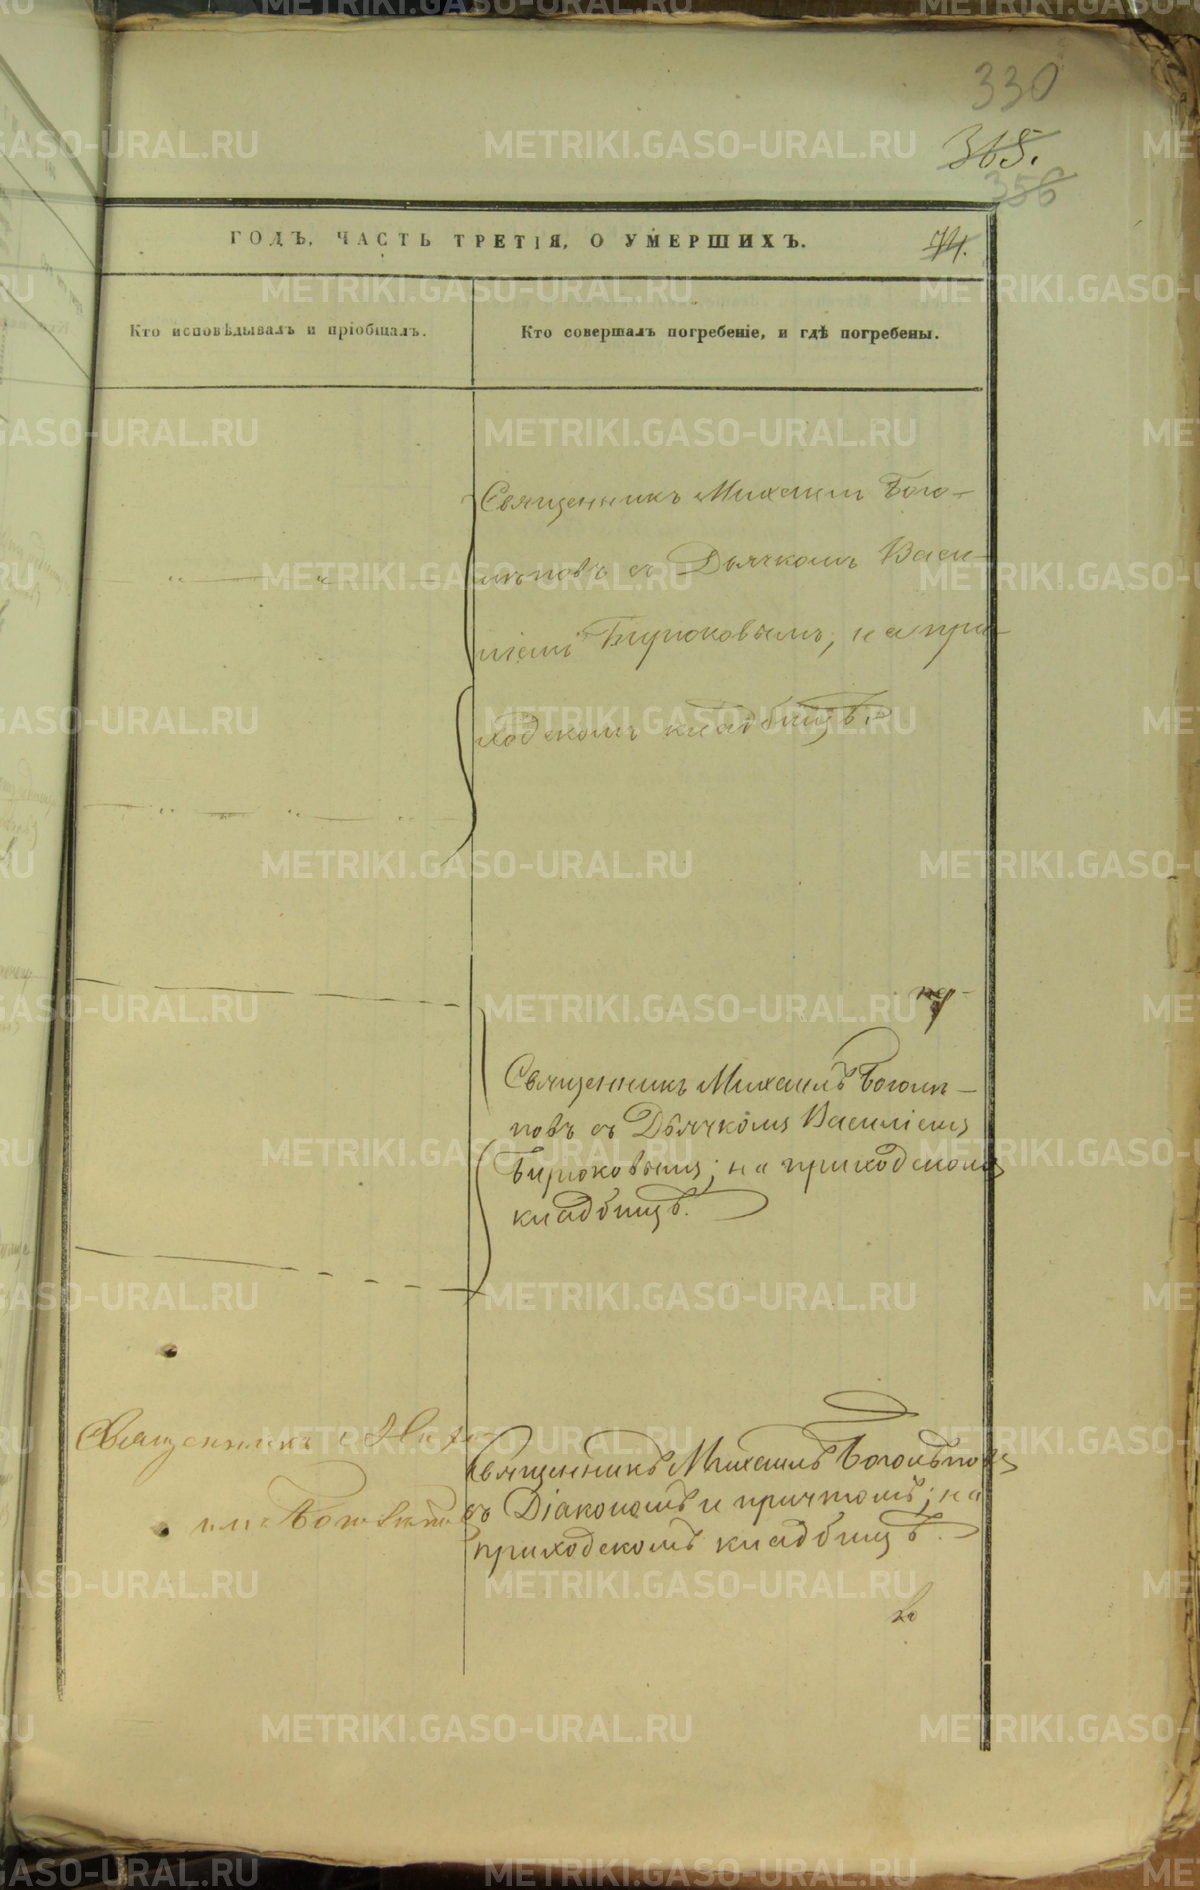 330
365.
356
ГОДЪ, ЧАСТЬ ТРЕТІЯ, О УМЕРШИХЪ.
74.
Кто исповѣдывалъ и пріобщалъ.
Кто совершалъ погребеніе, и гдѣ погребены.
Священникъ Михаилъ Бого-
лѣповъ съ Дьячкомъ Васи-
ліемъ Бирюковымъ, на при-
ходскомъ кладбищѣ.
Священникъ Михаилъ Боголѣ-
повъ съ Дьячкомъ Василіемъ
Бирюковымъ; на приходскомъ
кладбищѣ.
Священникъ Миха-
илъ Боголѣповъ
Священникъ Михаилъ Боголѣповъ
съ Діакономъ и причтомъ; на
приходскомъ кладбищѣ.
METRIKI.GASO-URAL.RU